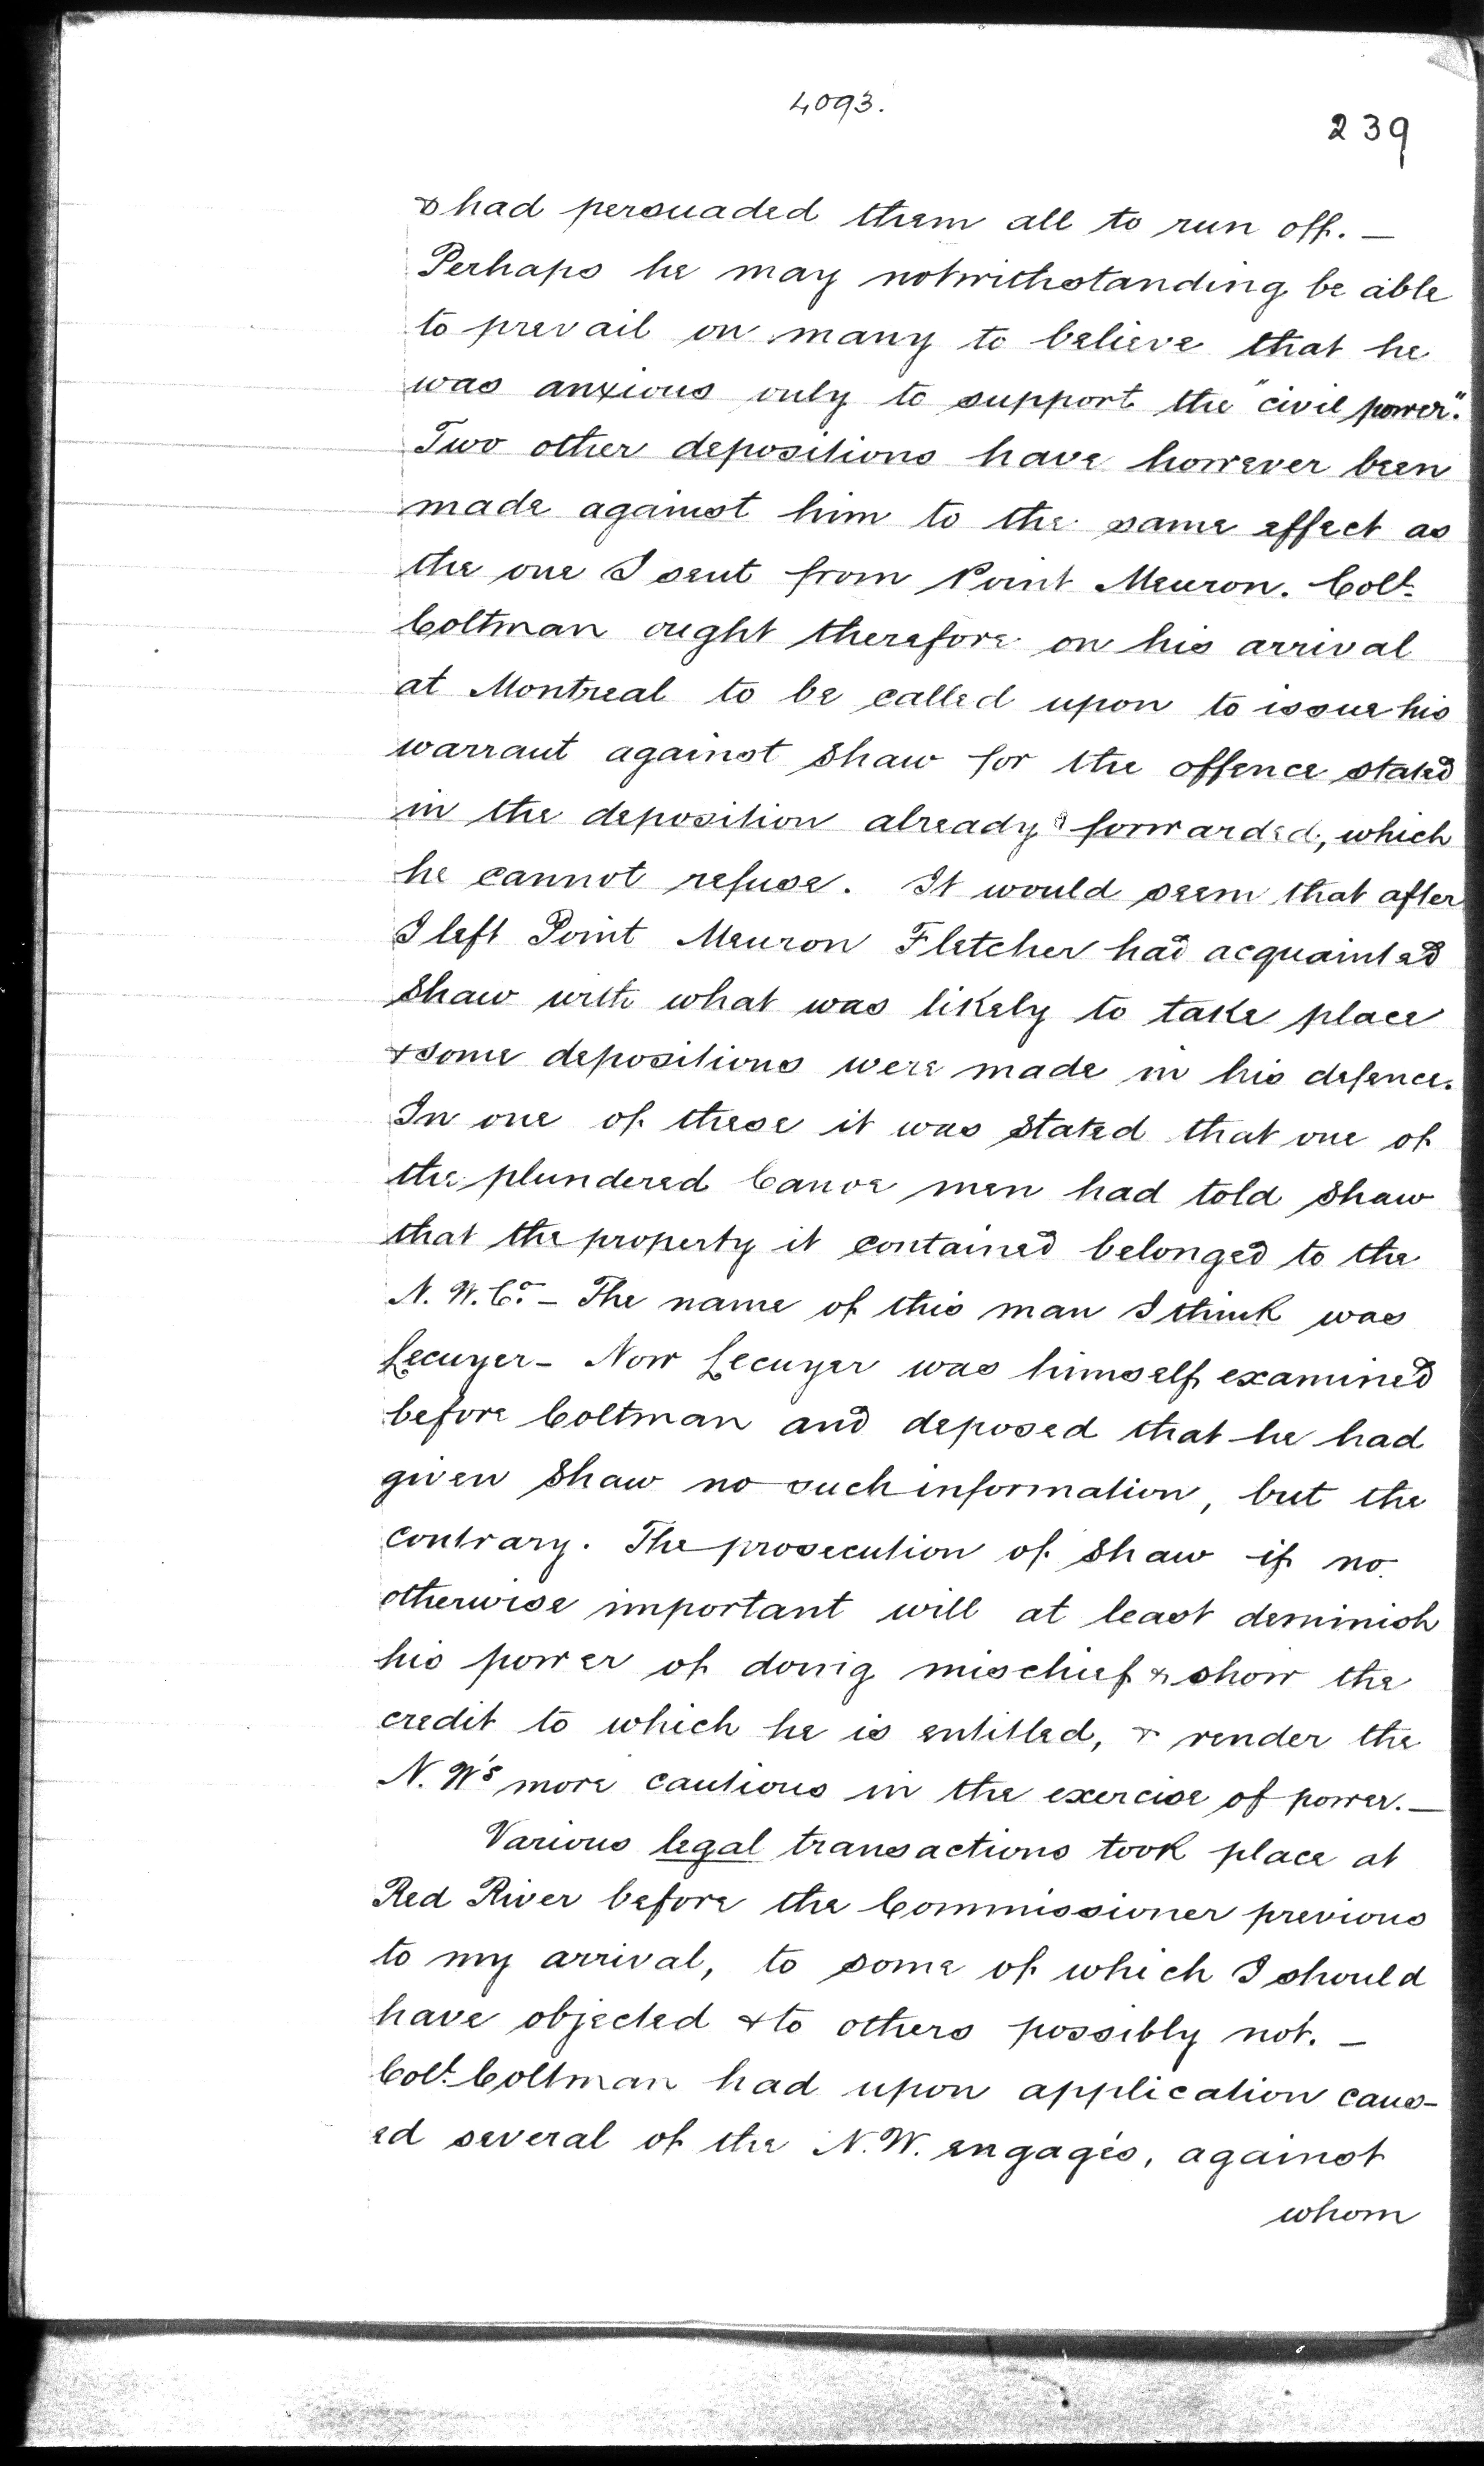 4093.
239
& had persuaded them all to run off. —
Perhaps he may notwithstanding be able
to prevail on many to believe that he
was anxious only to support the "civil power".
Two other depositions have however been
made against him to the same effect as
the one I sent from Point Meuron. Colt.
Coltman ought therefore on his arrival
at Montreal to be called upon to issue his
warrant against Shaw for the offence stated
in the deposition already forwarded, which
he cannot refuse. It would seem that after
I left Point Meuron Fletcher had acquainted
Shaw with what was likely to take place
& some depositions were made in his defence.
In one of these it was stated that one of
the plundered Canoe men had told Shaw
that the property it contained belonged to the
N. W. Co. – The name of this man I think was
Lecuyer – Now Lecuyer was himself examined
before Coltman and deposed that he had
given Shaw no such information, but the
contrary. The prosecution of Shaw if no
otherwise important will at least deminish
his power of doing mischief & show the
credit to which he is entitled, & render the
N. W's more cautious in the exercise of power. —
Various legal transactions took place at
Red River before the Commissioner previous
to my arrival, to some of which I should
have objected & to others possibly not. —
Colt. Coltman had upon application caus-
ed several of the N. W. engagés, against
whom